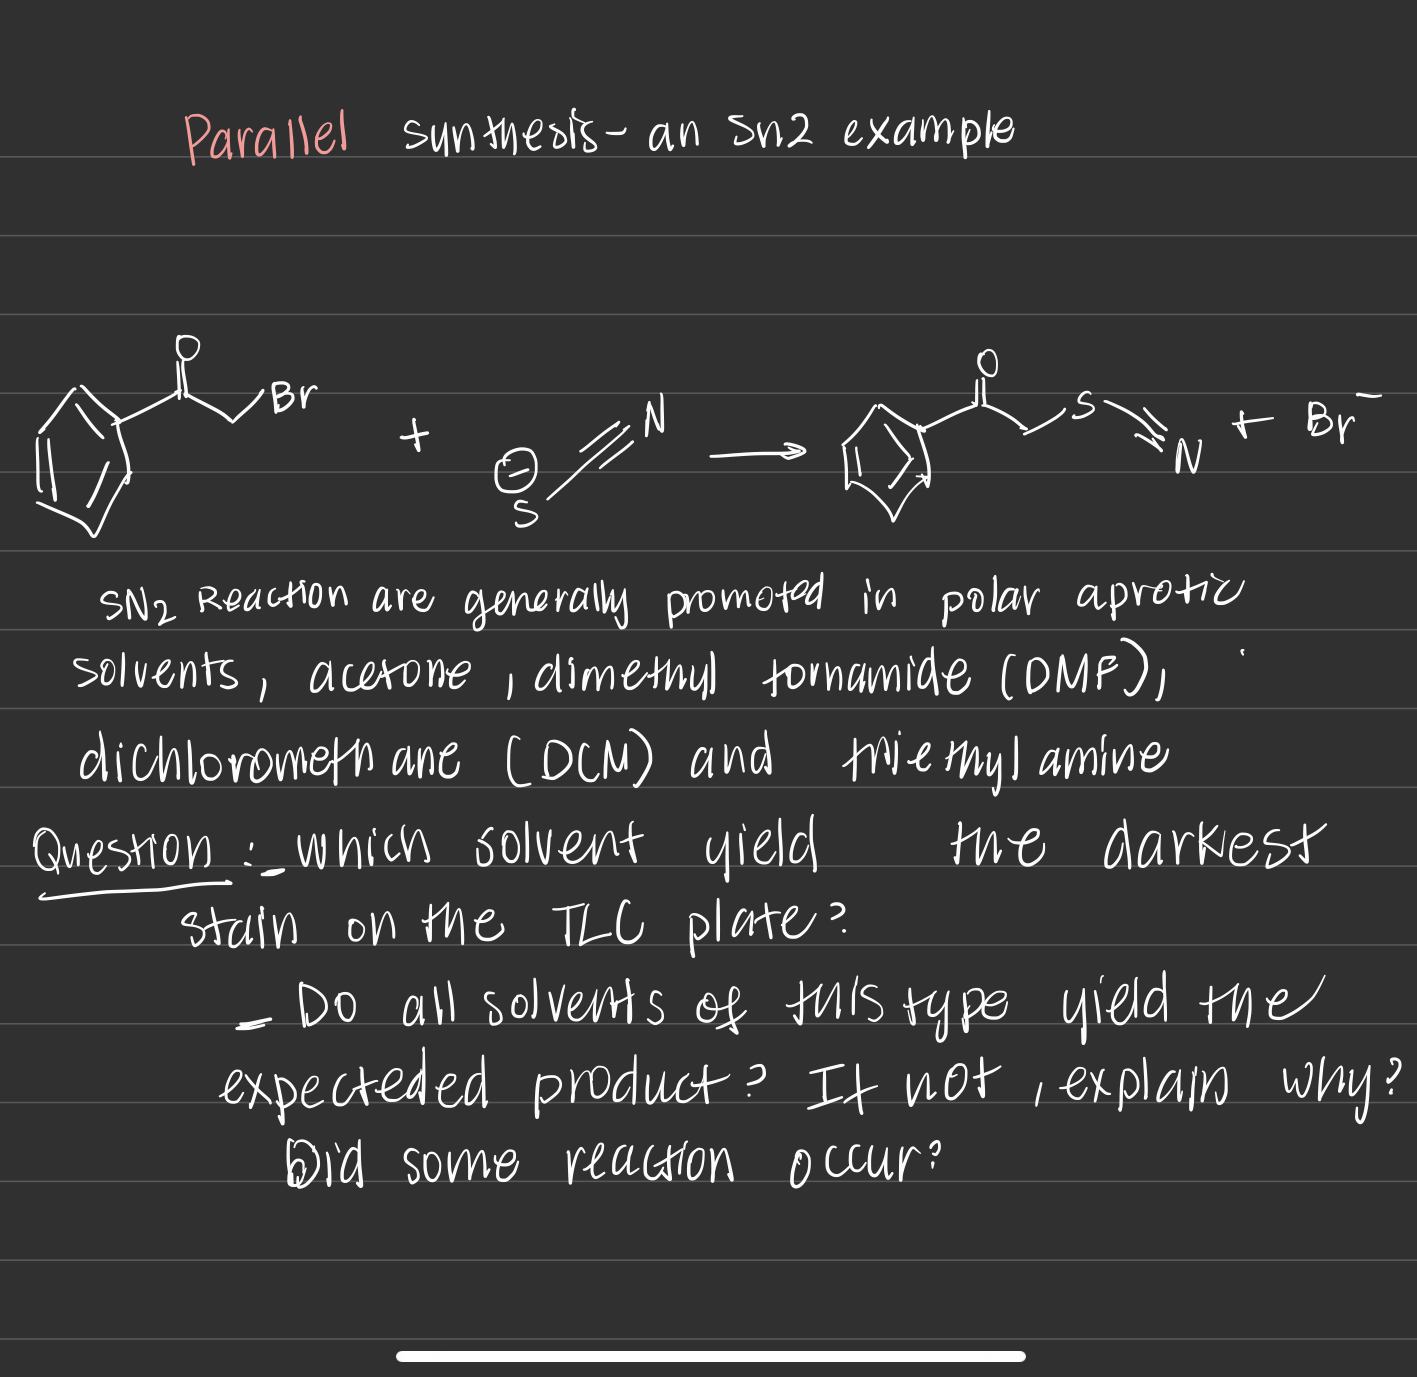 Parallel sunthesis- an Sn2 example
O
Br
+
N
S
O
S
N
+ Br⁻
SN2 Reaction are generally promoted in polar aprotic
solvents, acetone, dimethyl formamide (DMF),
dichloromethane (DCM) and triethylamine
Question:- which solvent yield the darkest
stain on the TLC plate?
- Do all solvents of this type yield the
expecteded product? If not, explain why?
Did some reaction occur?